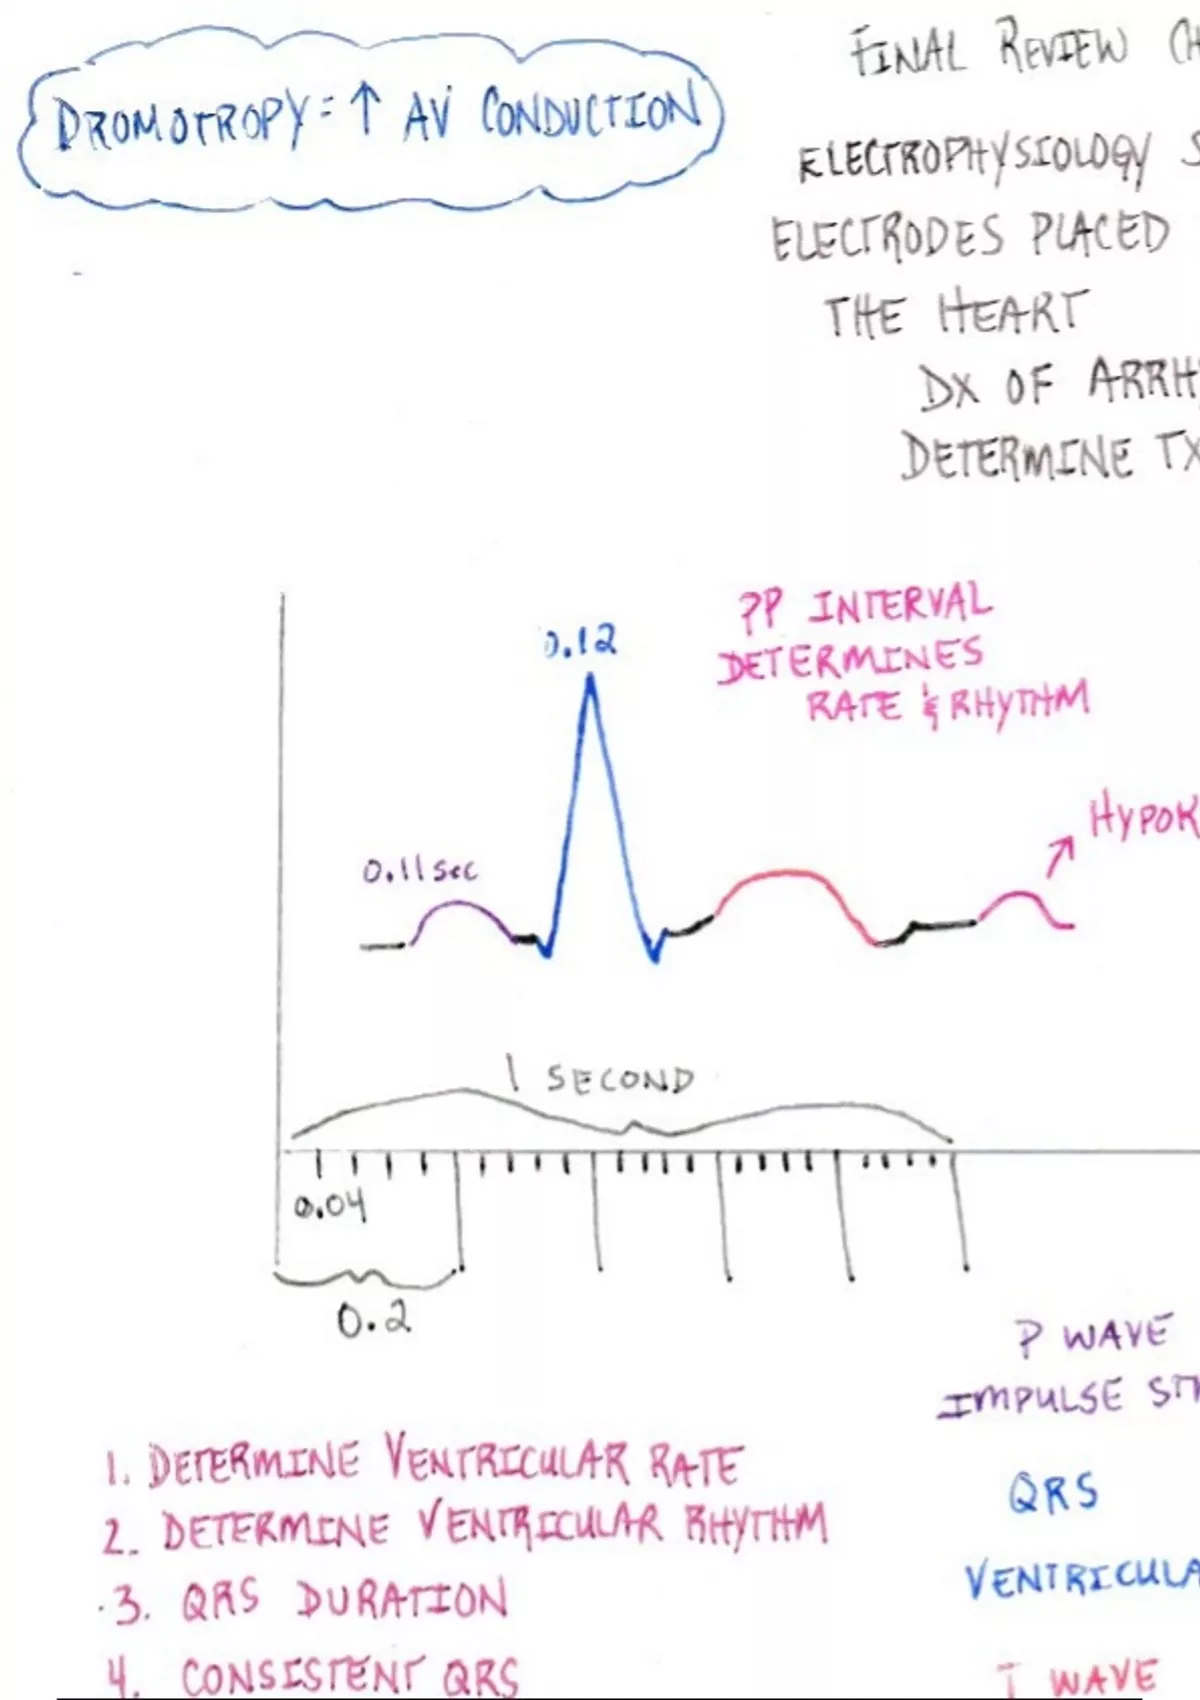 DROMOTROPY = ↑ AV CONDUCTION
FINAL REVIEW
ELECTROPHYSIOLOGY
ELECTRODES PLACED
THE HEART
DX OF
DETERMINE TX
PP INTERVAL
DETERMINES
RATE & RHYTHM
0.12
0.11 sec
1 SECOND
0.04
0.2
P WAVE
IMPULSE
1. DETERMINE VENTRICULAR RATE
2. DETERMINE VENTRICULAR RHYTHM
3. QRS DURATION
4. CONSISTENT QRS
QRS
T WAVE